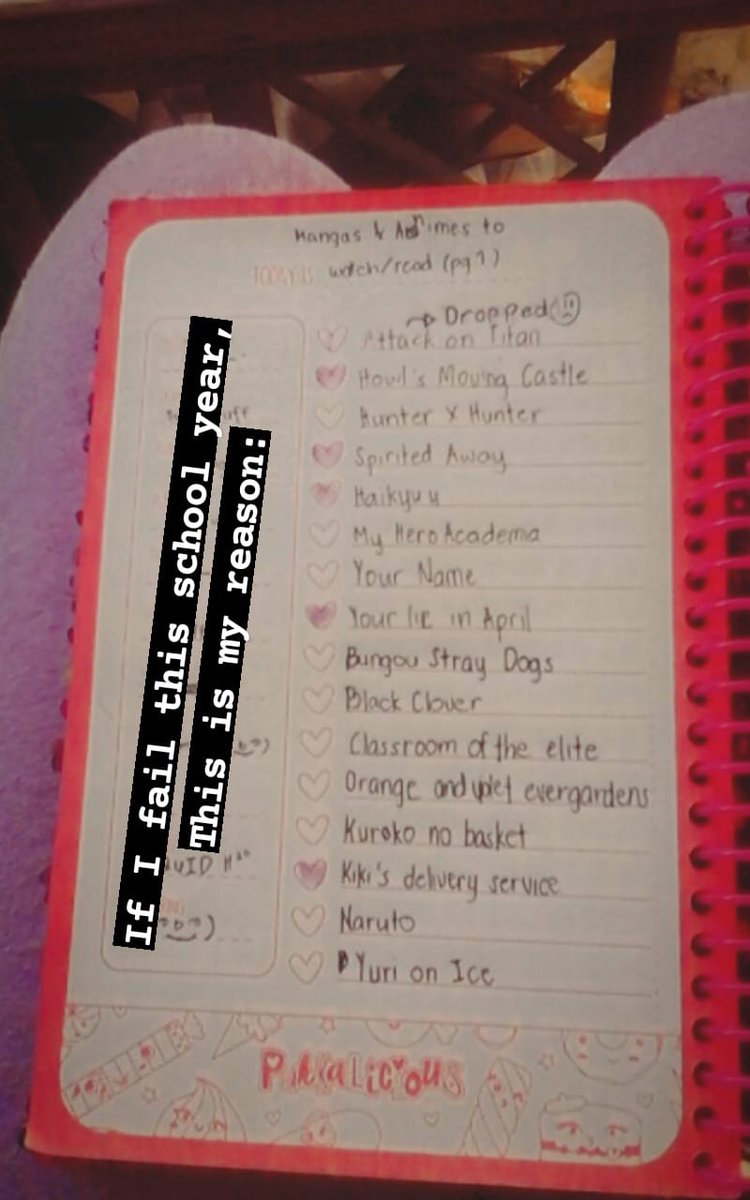 Mangas & Animes to
TODAY IS watch/read (pg 1)
→ Dropped
Attack on Titan
Howl's Moving Castle
Hunter X Hunter
Spirited Away
Haikyuu
My Hero Academa
Your Name
Your lie in April
Bungou Stray Dogs
Black Clover
Classroom of the elite
Orange and violet evergardens
Kuroko no basket
Kiki's delivery service
Naruto
Yuri on Ice
If I fail this school year,
This is my reason: